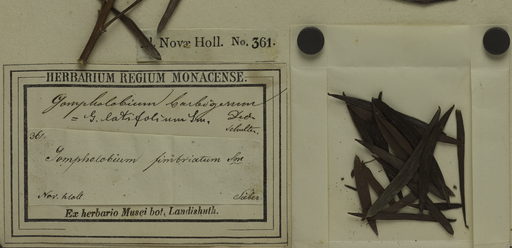 Novæ Holl. No. 361.
HERBARIUM REGIUM MONACENSE.
Gompholobium barbigerum
= G. latifolium Sm. Ded.
Schultes.
361.
Gompholobium fimbriatum Sm
Nov. Holl. Sieber
Ex herbario Musei bot. Landishuth.